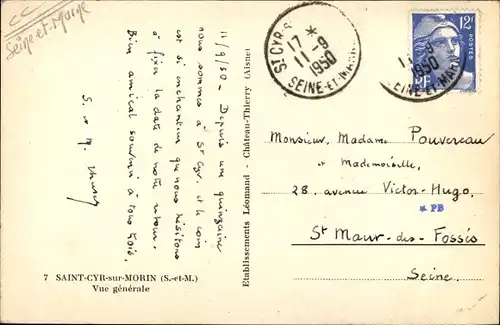 Seine-et-Marne
11/9/50 - Depuis une quinzaine
nous sommes à St Cyr. et le coin
est si enchanteur que nous hésitons
à fixer la date de notre retour.
Bien amical souvenir à tous trois.
S. et M.
7 SAINT-CYR-sur-MORIN (S.-et-M.)
Vue générale
Etablissements Léomand - Château-Thierry (Aisne)
ST CYR-S
17 *
11-9
1950
SEINE-ET-MARNE
12F
POSTES
RF
1950
Monsieur, Madame Pouvereau
et Mademoiselle,
28. avenue Victor-Hugo.
* PB
St Maur-des-Fossés
Seine.